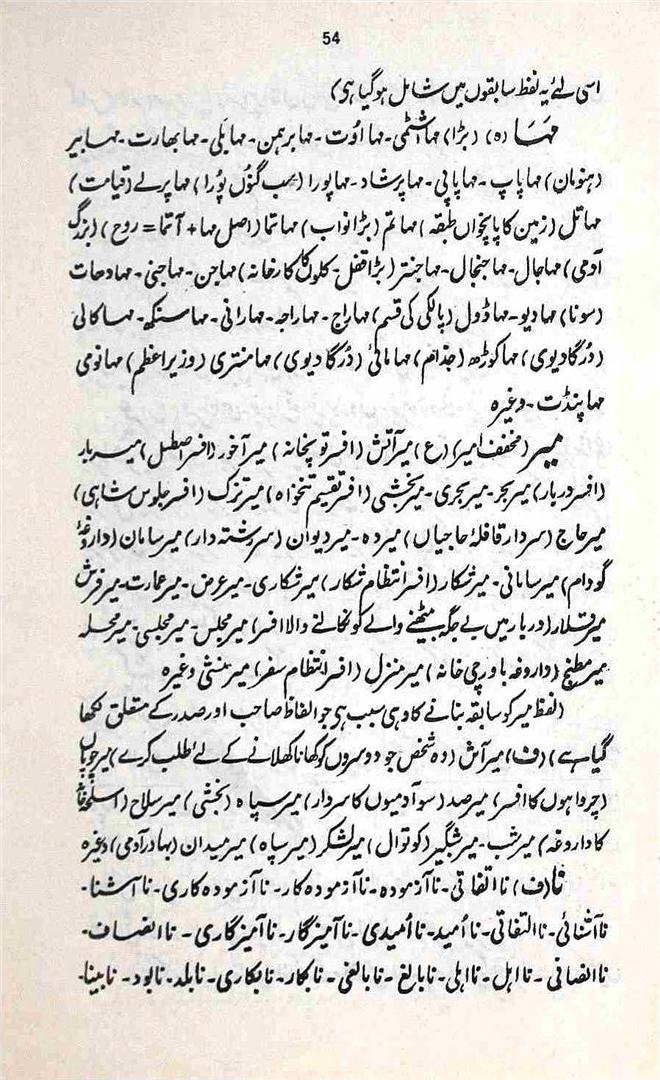 54
اسی لئے یہ لفظ سابقوں میں شامل ہوگیا ہی)
مہَا (ہ) (بڑا) مہااشٹمی۔ مہااوت۔ مہابرہمن۔ مہابلی۔ مہابھارت۔ مہابیر
(ہنومان) مہاپاپ۔ مہاپاپی۔ مہاپرشاد۔ مہاپورا (سب گنوں پورا) مہاپرلے (قیامت)
مہاتل (زمین کا پانچواں طبقہ) مہاتم (بڑا نواب) مہاتما (اصل مہا + آتما = روح) (بزرگ
آدمی) مہاجال۔ مہاجنجال۔ مہاجنتر (بڑا قفل۔ کلوں کا کارخانہ) مہاجن۔ مہاجنی۔ مہادھات
(سونا) مہادیو۔ مہاڈول (پالکی کی قسم) مہاراج۔ مہاراجہ۔ مہارانی۔ مہاسنکھ۔ مہاکالی
(درگا دیوی) مہاکوڑھ (جذام) مہامائی (درگا دیوی) مہامنتری (وزیر اعظم) مہانومی
مہاپنڈت۔ وغیرہ
میر (مخفف امیر) (ع) میرآتش (افسر توپخانہ) میرآخور (افسر اصطبل) میربار
(افسر دربار) میربحر۔ میربحری۔ میربخشی (افسر تقسیم تنخواہ) میرتزک (افسر جلوس شاہی)
میرحاج (سردار قافلۂ حاجیاں) میردہ۔ میردیوان (سررشتہ دار) میرسامان (داروغۂ
گودام) میرسامانی۔ میرشکار (افسر انتظام شکار) میرشکاری۔ میرعرض۔ میرعمارت۔ میرفرش
(دربار میں بے جگہ بیٹھنے والے کو نکالنے والا افسر) میرمجلس۔ میرمجلسی۔ میرمحلہ
میرمطبخ (داروغہ باورچی خانہ) میرمنزل (افسر انتظام سفر) میرمنشی وغیرہ
(لفظ میر کو سابقہ بنانے کا وہی سبب ہی جو الفاظ صاحب اور صدر کے متعلق لکھا
گیا ہے) (ف) میرآش (وہ شخص جو دوسروں کو کھانا کھلانے کے لئے طلب کرے)
(چرواہوں کا افسر) میرصد (سو آدمیوں کا سردار) میرسپاہ (بخشی) میرسلاح (اسلحہ خانہ
کا داروغہ) میرشب۔ میرشبگیر (کوتوال) میرلشکر (میرسپاہ) میرمیدان (بہادر آدمی) وغیرہ
نا (ف) نااتفاقی۔ ناآزمودہ۔ ناآزمودہ کار۔ ناآزمودہ کاری۔ ناآشنا۔
ناآشنائی۔ ناالتفاتی۔ ناامید۔ ناامیدی۔ ناآمیزگار۔ ناآمیزگاری۔ ناانصاف۔
ناانصافی۔ نااہل۔ نااہلی۔ نابالغ۔ نابالغی۔ نابکار۔ نابکاری۔ نابلد۔ نابود۔ نابینا۔